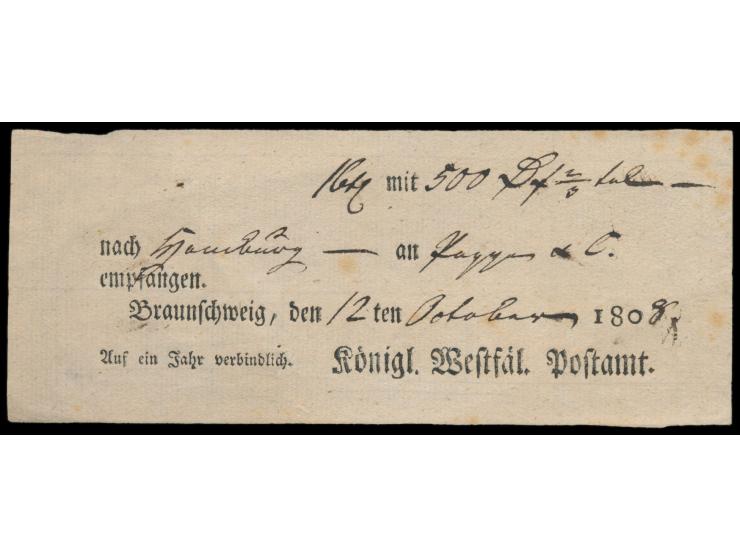 1 mit 500 2/3
nach Hamburg — an & C.
empfangen.
Braunschweig, den 12 ten October 1808
Auf ein Jahr verbindlich. Königl. Westfäl. Postamt.